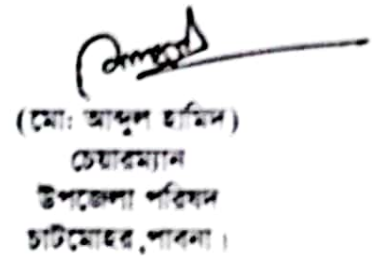 (মো: আব্দুল হামিদ)
চেয়ারম্যান
উপজেলা পরিষদ
চাটমোহর, পাবনা।